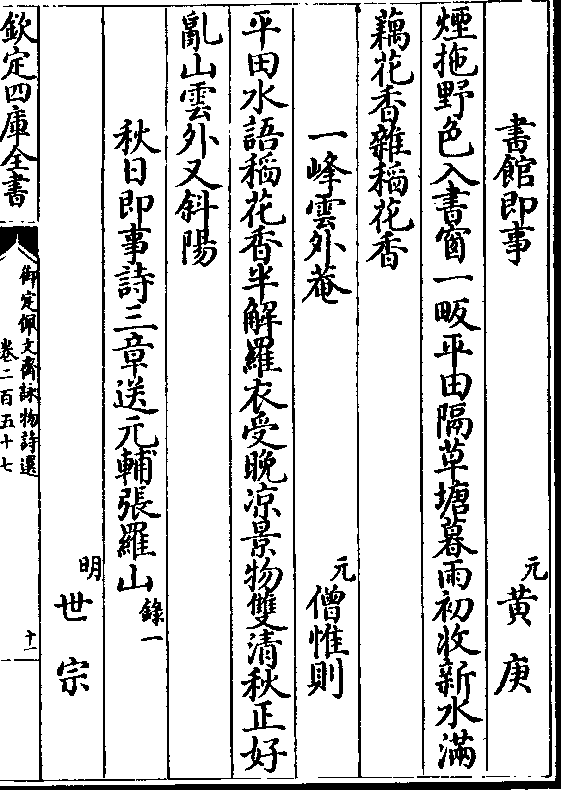 書館即事
元黄庚
煙拖野色入書窗一畈平田隔草塘暮雨初收新水滿
藕花香雜稻花香
一峰雲外菴
元僧惟則
平田水語稻花香半解羅衣受晚凉景物雙清秋正好
亂山雲外又斜陽
秋日即事詩三章送元輔張羅山錄一
明世宗
欽定四庫全書
御定佩文齋詠物詩選
卷二百五十七
十一